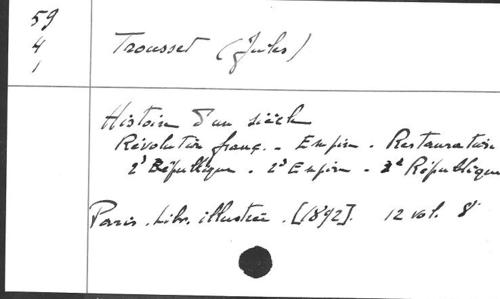 59
4
1
Trousset (Jules)
Histoire d'un siècle
Révolution franç. - Empire - Restauration
2e République - 2d Empire - 3e République
Paris. Libr. illustrée. [1892]. 12 vol. 8°